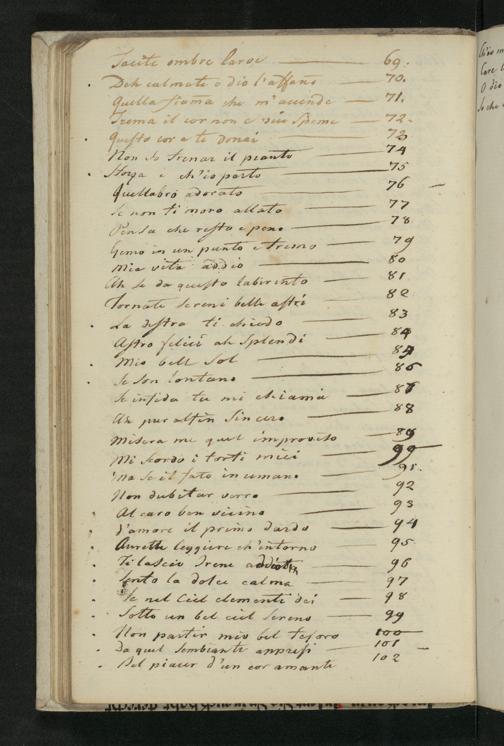 Tacite ombre larve 69.
Deh calmate o dio l'affano 70.
Quella fiama che m'acende 71.
Trema il cor non è piu speme 72.
Questo cor a te donai 73
Non so frenar il pianto 74
Sforza e ch'io parta 75
Quellabro adorato 76
Se non ti moro allato 77
Pensa che resto e peno 78
Gemo in un punto e fremo 79
Mia vita addio 80
Ah se da questo laberinto 81
Tornate sereni belle astri 82
La destra ti chiedo 83
Astro felici ah splendi 84
Mio bell sol 85
Se son lontano 86
Se infida tu mi chiami 87
Ah pur alfin sincero 88
Misera me qual improviso 89
Mi scordo i torti miei 90
Ma se il fato in umano 91.
Non dubitar verro 92
Al caro ben vicino 93
d'amore il primo dardo 94
Aurette leggiere ch'intorno 95
Ti lascio Irene 96
Sento la dolce calma 97
Se nel Ciel clementi dei 98
Sotto un bel ciel sereno 99
Non partir mio bel tesoro 100
Da quel sembiante appresi 101
Del piacer d'un cor amante 102